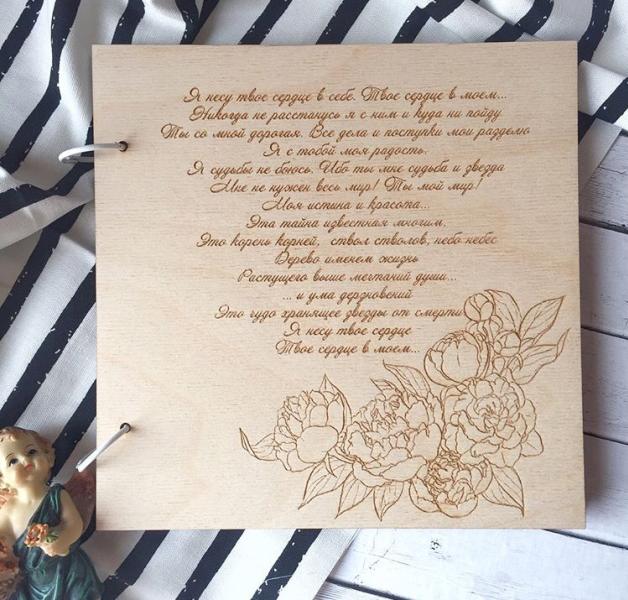 Я несу твое сердце в себе. Твое сердце в моем...
Никогда не расстанусь я с ним и куда ни пойду
Ты со мной дорогая. Все дела и поступки мои разделю
Я с тобой моя радость.
Я судьбы не боюсь. Ибо ты мне судьба и звезда
Мне не нужен весь мир! Ты мой мир!
Моя истина и красота...
Эта тайна известная многим.
Это корень корней, ствол стволов, небо небес
Дерево именем жизнь
Растущего выше мечтаний души...
... и ума дерзновений
Это чудо хранящее звезды от смерти
Я несу твое сердце
Твое сердце в моем...